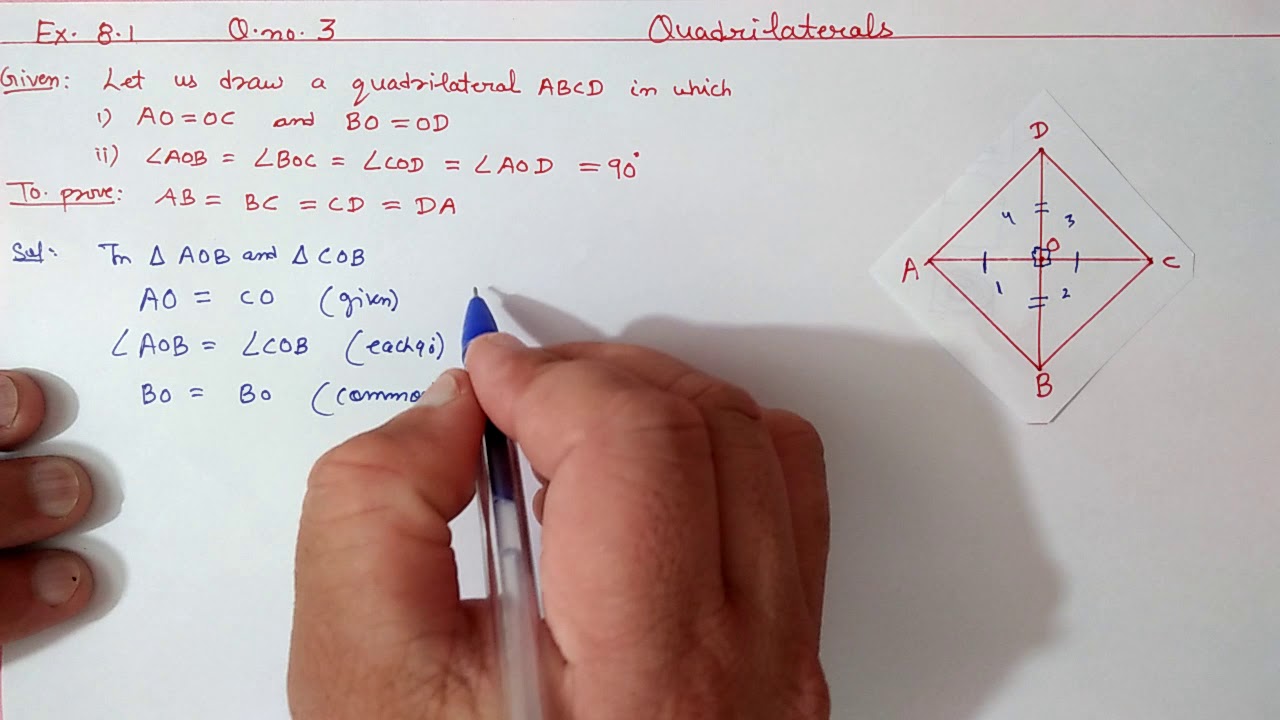 Ex. 8.1 Q.no. 3 Quadrilaterals
Given: Let us draw a quadrilateral ABCD in which
i) AO = OC and BO = OD
ii) ∠AOB = ∠BOC = ∠COD = ∠AOD = 90°
To prove: AB = BC = CD = DA
Sol: In Δ AOB and Δ COB
AO = CO (given)
∠AOB = ∠COB (each 90)
BO = BO (commo
D
4 3
O
A C
1 2
B